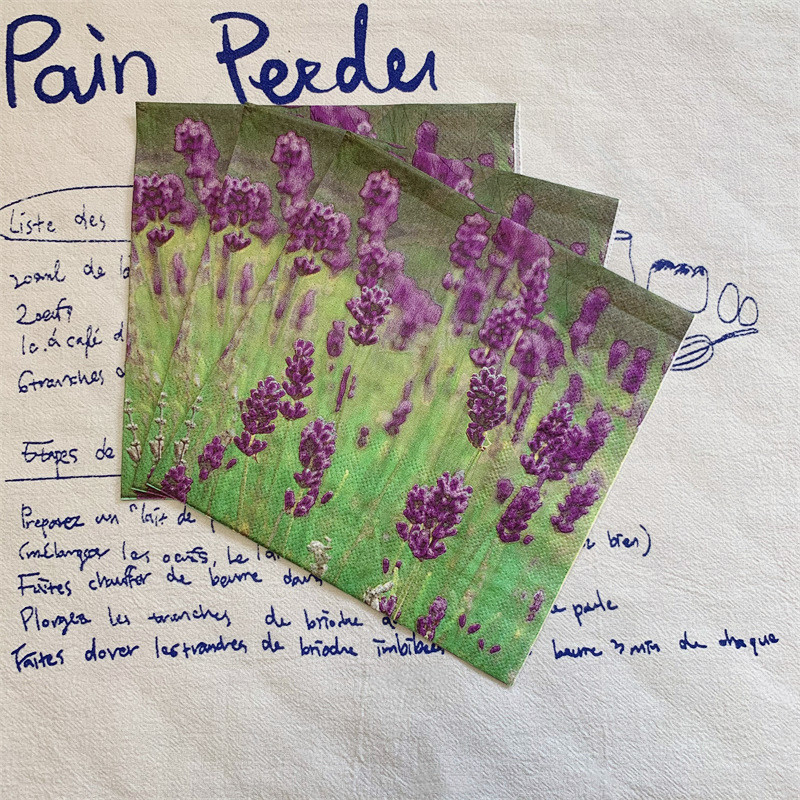 Pain Perdu
Liste des
200ml de la
2 oeufs
1c.à café d
6 tranches
Etapes de
Preparez un "lait de
(mélanger les oeufs, le la
bien)
Faites chauffer de beurre dans
Plongez les tranches de brioche
poele
Faites dorer les tranches de brioche imbibées
beurre 3 min de chaque